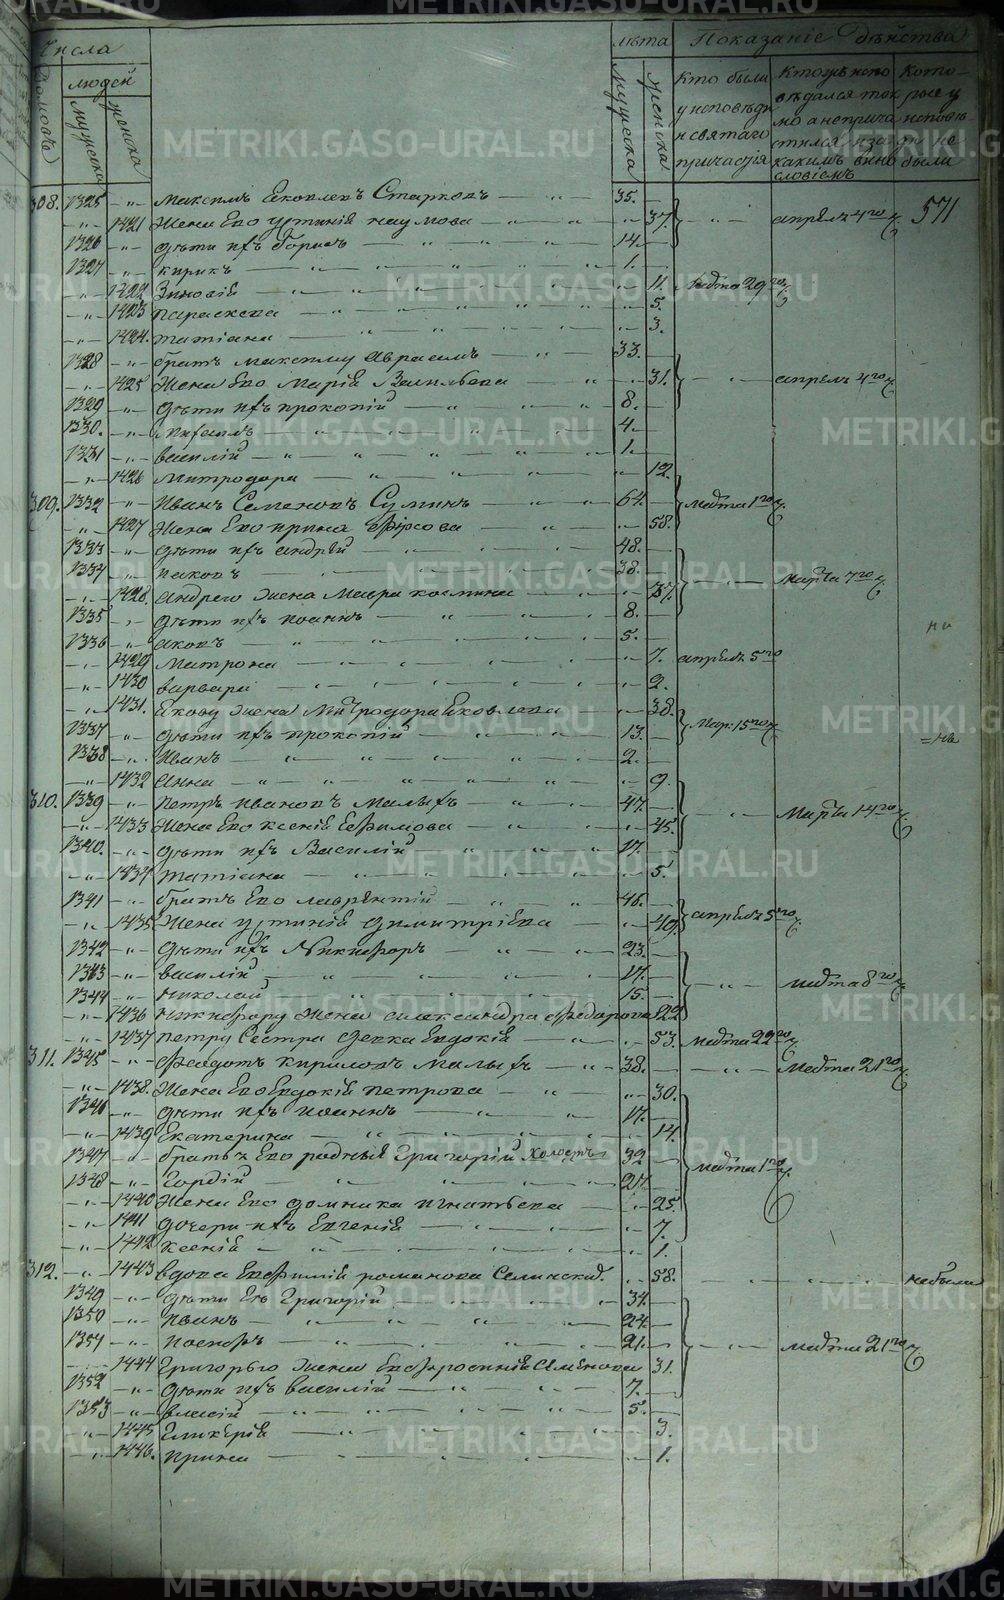 Числа лѣта Показаніе дѣйства
Домовъ людей мужеска женска мужеска женска
Кто были у исповѣди и святаго причастія
Кто же исповѣдался токмо а не причастился и за какимъ винословіемъ
Которые у исповѣди не были
571
308. 1325 Максимъ Яковлевъ Старковъ 35.
1421 Жена Его Устинія Наумова 37. апреля 4го
1326 дѣти ихъ Борисъ 14.
1327 Кирикъ 1.
1422 Зиновія 11. марта 29го
1423 Параскева 5.
1424. Татіана 3.
1328 братъ Максиму Авраамъ 33.
1425 Жена Его Марія Васильева 31. апреля 4го
1329 дѣти ихъ Прокопій 8.
1330. 4.
1331 Василій 1.
1426 Митродора 12.
309. 1332 Иванъ Семеновъ Суминъ 64. марта 1го
1427 Жена Его Ирина Фирсова 58.
1333 дѣти ихъ Андрей 48.
1334 Иаковъ 38. марта 7го
1428. Андрею жена Мавра Космина 37.
1335 дѣти ихъ Иоаннъ 8.
1336 Яковъ 5.
1429 Матрона 7. апреля 5го
1430 Варвара 2.
1431. Якову жена Митродора Яковлева 38. Мар. 15го
1337 дѣти ихъ Прокопій 13.
1338 Иванъ 2.
1432 Анна 9.
310. 1339 Петръ Ивановъ Малыхъ 47. Марта 14го
1433 Жена Его Ксенія Ефимова 45.
1340. дѣти ихъ Василій 17.
1434 Татіана 5.
1341 братъ Его Лаврентій 46.
1435 Жена Устинія Димитріева 49. апреля 5го
1342 дѣти ихъ Никифоръ 23.
1343 Василій 17. марта 8го
1344 Николай 15.
1436 Никифору жена Александра Федорова 22
1437 Петру Сестра девка Евдокія 53. марта 22го
311. 1345 Федотъ Кириловъ Малыхъ 38. Марта 21го
1438. Жена Его Евдокія Петрова 30.
1346 дѣти ихъ Иоаннъ 17.
1439 Екатерина 14.
1347 братья Его родныя Григорій холостъ 32 марта 1го
1348 Гордій 27.
1440 Жена Его Домника Игнатьева 25.
1441 дочери ихъ Евгенія 7.
1442 Ксенія 1.
312. 1443 вдова Евфимія Романова 58. не были
1349 дѣти Ея Григорій 34.
1350 Иванъ 24.
1351 Иосифъ 21. марта 21го
1444 Григорью жена Евфросинія Семенова 31.
1352 дѣти ихъ Василій 7.
1353 Власій 5.
1445 Гликерія 3.
1446. Ирина 1.
METRIKI.GASO-URAL.RU